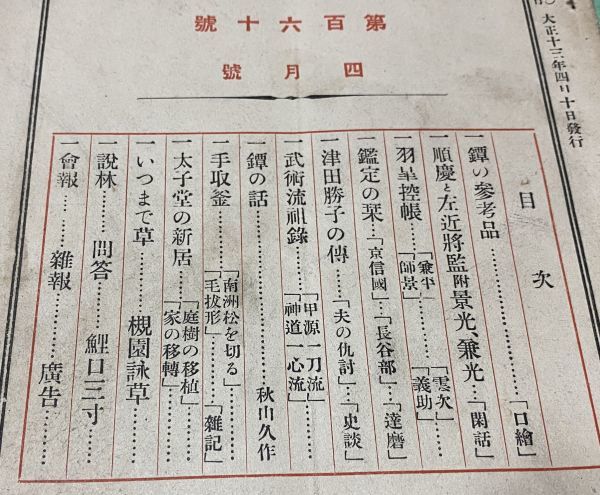 大正十三年四月十日發行
第百六十號
四月號
目次
一鐔の參考品………「口繪」
一順慶と左近將監附景光、兼光…「閑話」
一羽皐控帳…「兼平」…「雲次」「師景」…「義助」
一鑑定の栞…「京信國」…「長谷部」…「達磨」
一津田勝子の傳…「夫の仇討」…「史談」
一武術流祖錄…「甲源一刀流」「神道一心流」
一鐔の話………秋山久作
一手取釜…「南洲松を切る」「毛拔形」…「雜記」
一太子堂の新居…「庭樹の移植」「家の移轉」
一いつまで草………槻園詠草
一說林……問答……鯉口三寸
一會報……雜報……廣告